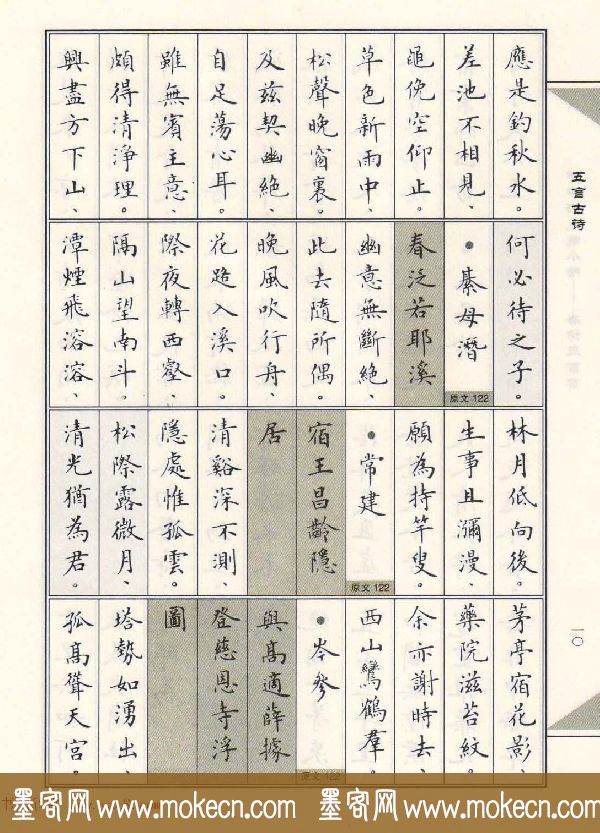 應是釣秋水。
差池不相見、
黽俛空仰止。
草色新雨中、
松聲晚窗裏。
及茲契幽絕、
自足蕩心耳。
雖無賓主意、
頗得清淨理。
興盡方下山、
何必待之子。
•綦母潛
原文 122
春泛若耶溪
幽意無斷絕、
此去隨所偶。
晚風吹行舟、
花路入溪口。
際夜轉西壑、
隔山望南斗。
潭煙飛溶溶、
林月低向後。
生事且瀰漫、
願為持竿叟。
•常建
原文 122
宿王昌齡隱
居
清谿深不測、
隱處惟孤雲。
松際露微月、
清光猶為君。
茅亭宿花影、
藥院滋苔紋。
余亦謝時去、
西山鸞鶴羣。
•岑參
原文 122
與高適薛據
登慈恩寺浮
圖
塔勢如湧出、
孤高聳天宮。
五言古诗
一〇
墨客网 www.mokecn.com 墨客网 www.mokecn.com